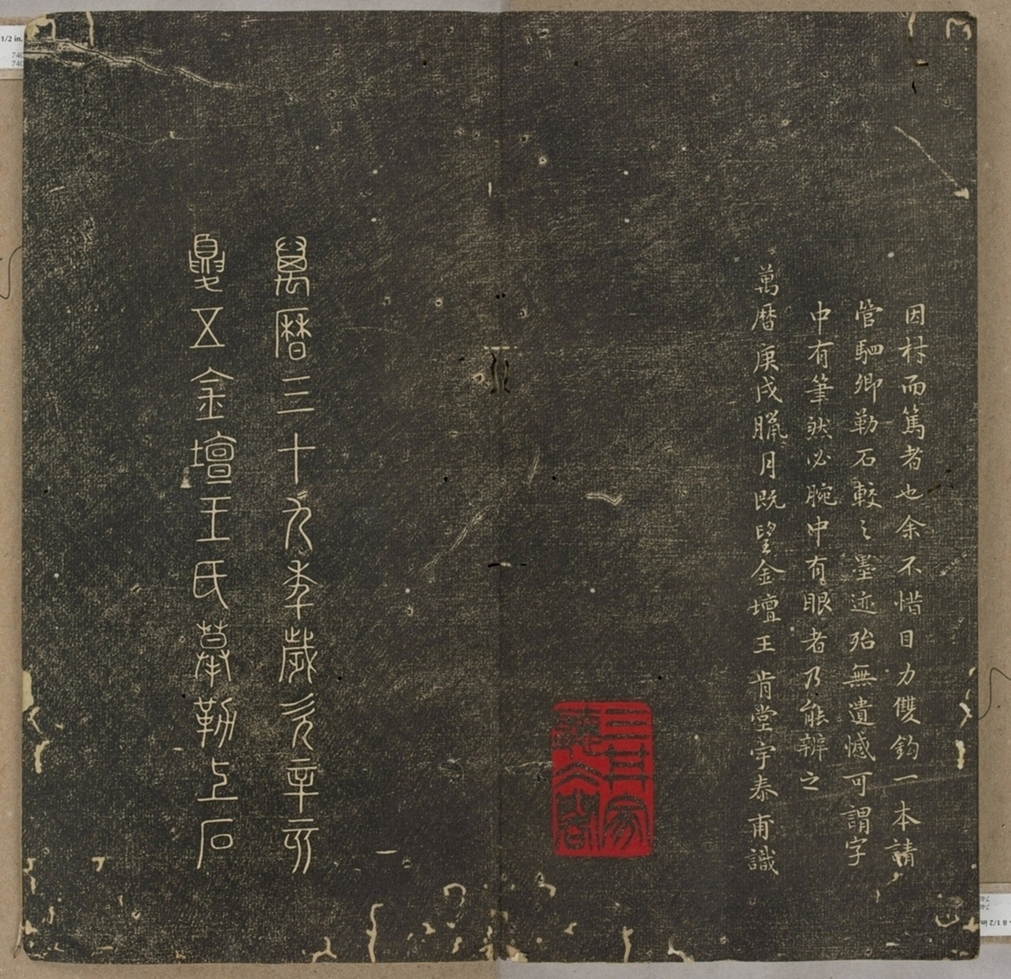 因材而篤者也余不惜目力雙鉤一本請
管駟卿勒石較之墨迹殆無遺憾可謂字
中有筆然必腕中有眼者乃能辦之
萬曆庚戌臘月既望金壇王肯堂宇泰甫識
萬曆三十九年歲次辛亥
夏五金壇王氏摹勒上石